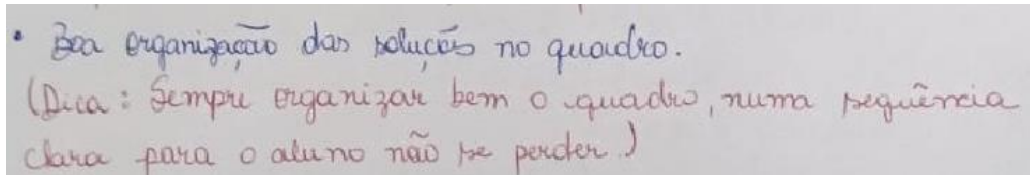 • Boa organização das soluções no quadro.
(Dica: Sempre organizar bem o quadro, numa sequência
clara para o aluno não se perder.)